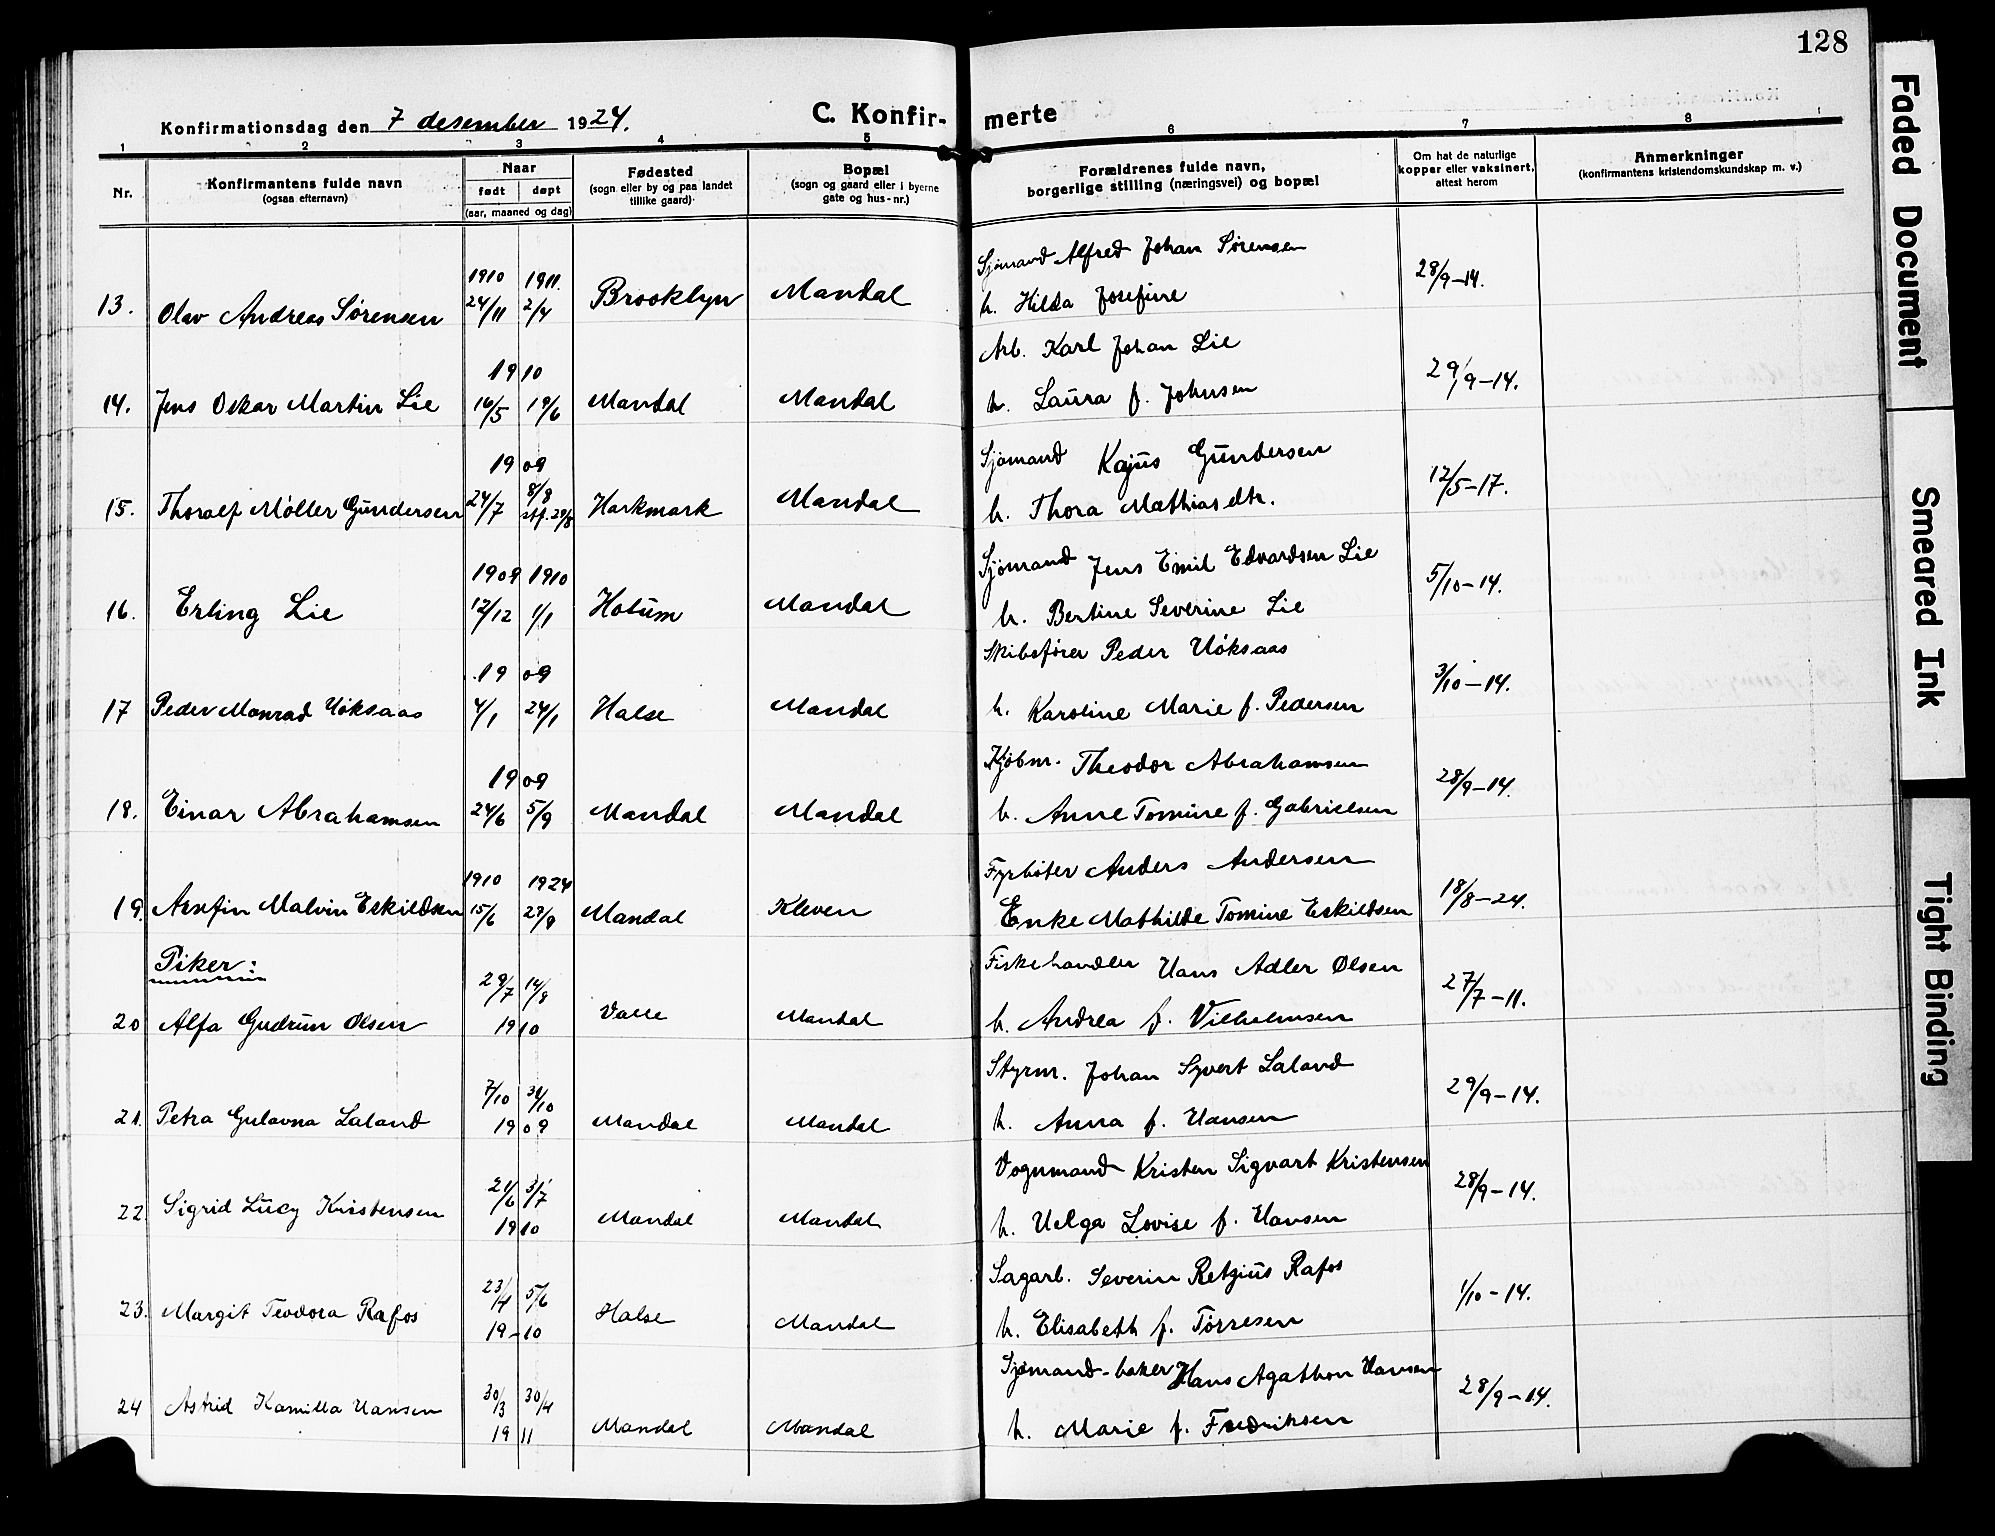 128
Konfirmationsdag den 7 desember 1924.
C. Konfir-
merte
1 2 3 4 5 6 7 8
Nr.
Konfirmantens fulde navn
(ogsaa efternavn)
Naar
født døpt
(aar, maaned og dag)
Fødested
(sogn eller by og paa landet
tillike gaard)
Bopæl
(sogn og gaard eller i byerne
gate og hus-nr.)
Forældrenes fulde navn,
borgerlige stilling (næringsvei) og bopæl
Om hat de naturlige
kopper eller vaksinert,
attest herom
Anmerkninger
(konfirmantens kristendomskundskap m. v.)
Sjømand Alfred Johan Sørensen
1910 1911. 28/9-14.
13. Olav Andreas Sørensen 24/11 2/4 Brooklyn Mandal h. Hilda Josefine
1910 Arb. Karl Johan Lie 29/9-14.
14. Jens Oskar Martin Lie 16/5 19/6 Mandal Mandal h. Laura f. Johnsen
1909 8/8 Sjømand Kajus Gundersen 12/5-17.
15. Thoralf Møller Gundersen 24/7 stf. 29/8 Harkmark Mandal h. Thora Mathiasdtr.
1909 1910 Sjømand Jens Emil Edvardsen Lie 5/10-14.
16. Erling Lie 12/12 1/1 Holum Mandal h. Bertine Severine Lie
1909 Skibsfører Peder Høksaas 3/10-14.
17 Peder Monrad Høksaas 4/1 24/1 Halse Mandal h. Karoline Marie f. Pedersen
1909 Kjøbm. Theodor Abrahamsen 28/9-14.
18. Einar Abrahamsen 24/6 5/9 Mandal Mandal h. Anne Tomine f. Gabrielsen
1910 1924 Fyrbøter Anders Andersen 18/8-24.
19. Arnfin Malvin Eskildsen 15/6 Mandal Kleven Enke Mathilde Tomine Eskildsen
Piker:
29/7 14/8 Fiskehandler Hans Adler Olsen 27/7-11.
20 Alfa Gudrun Olsen 1910 Valle Mandal h. Andrea f. Vilhelmsen
7/10 31/10 Styrm. Johan Syvert Laland 29/9-14.
21. Petra Gulavna Laland 1909 Mandal Mandal h. Anna f. Hansen
21/6 31/7 Vognmand Kristen Sigvart Kristensen 28/9-14.
22 Sigrid Lucy Kristensen 1910 Mandal Mandal h. Helga Lovise f. Hansen
23/4 5/6 Sagarb. Severin Retzius Rafos 1/10-14.
23. Margit Teodora Rafos 19-10 Halse Mandal h. Elisabeth f. Tørresen
30/3 30/4 Sjømand-baker Hans Agathon Hansen 28/9-14.
24 Astrid Kamilla Hansen 1911 Mandal Mandal h. Marie f. Fredriksen
Faded Document
Smeared Ink
Tight Binding